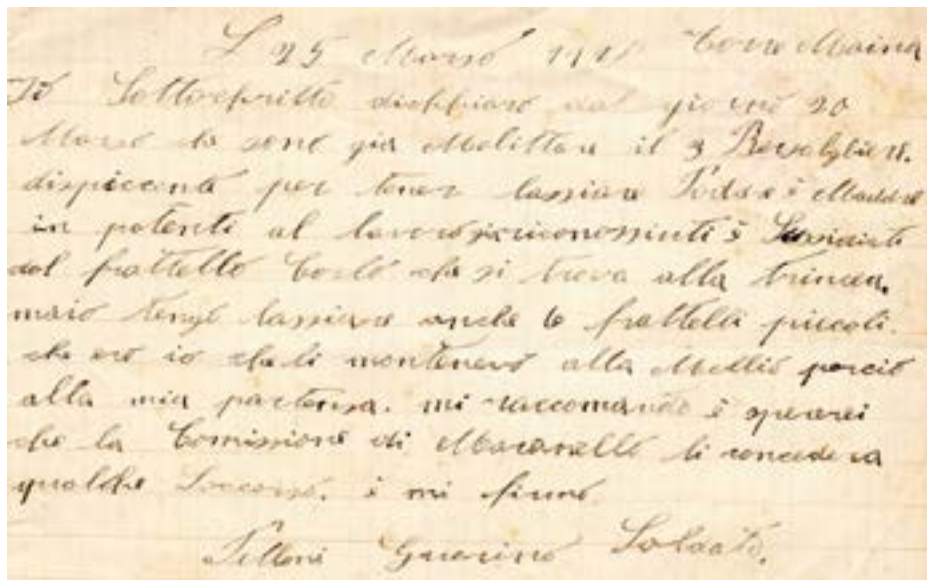 L 25 Marzo 191 Torre Maina
Io Sottoscritto dicchiaro dal giorno 20
Marzo che sono gia Melittare il 3 Bersaglieri.
dispiccente per tener lassiare Padre e Maddre
in potenti al lavoro riconossiuti e Sussidiati
dal frattello Carlo che si trova alla trincea,
maio tengo lassiare anche 6 frattelli piccoli.
che ero io che li mantenevo alla Mellio perciò
alla mia partensa. mi raccomando e spererei
che la Comissione di Maranello li concedera
qualche Soccorso. e mi firmo.
Guerino Soldato.